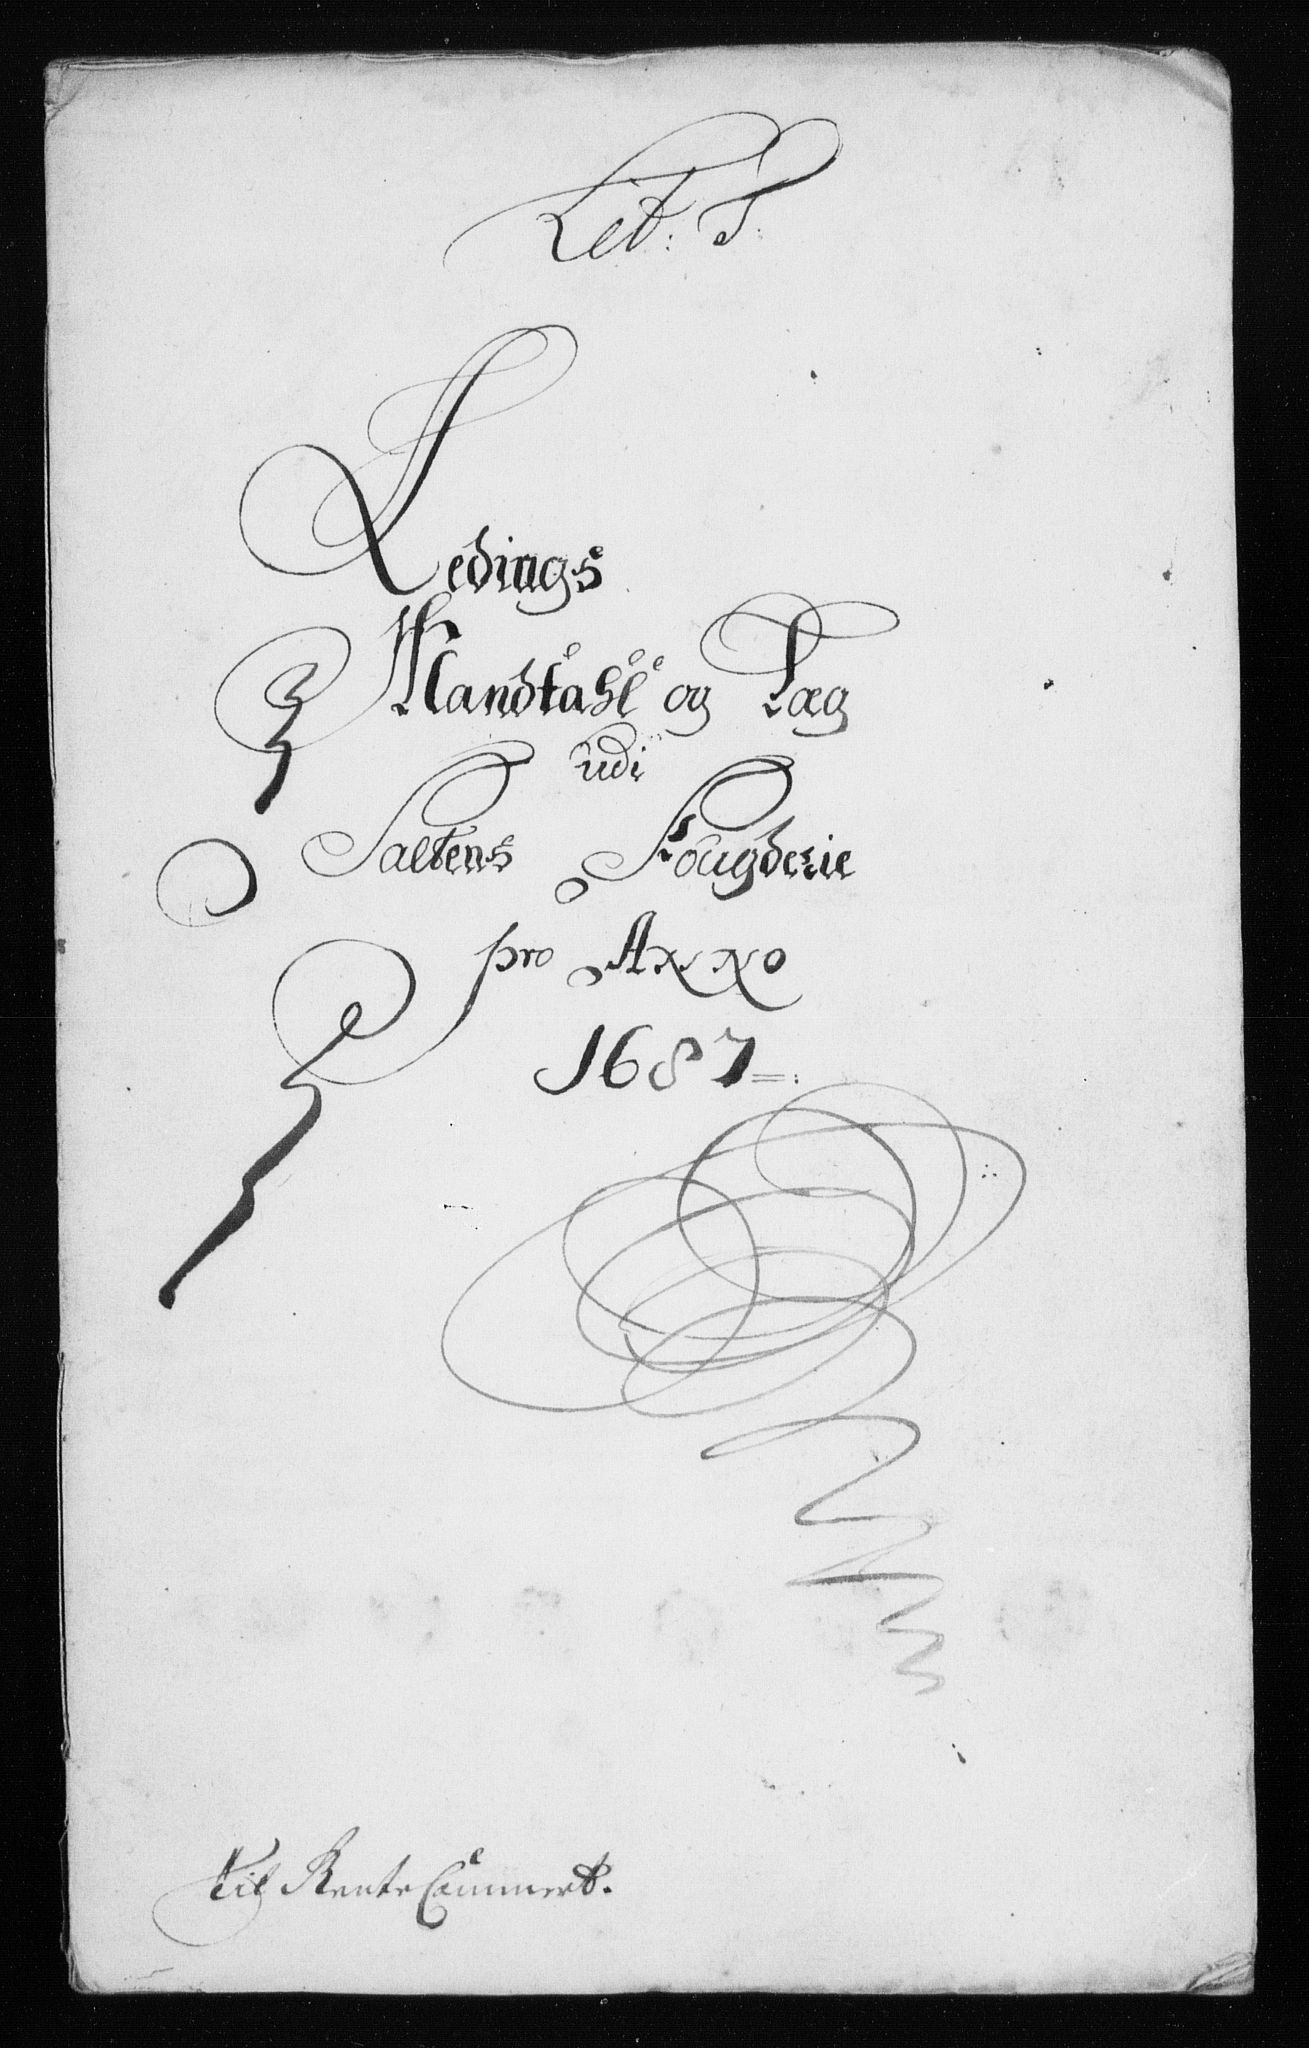 Lit: T:
Ledings
Mandtahl og Læg
udi
Saltens Fougderie
pro Anno
1687
Til Rente Cammert.